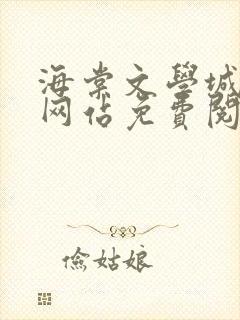 海棠文學城
网站免費閱
儉姑娘